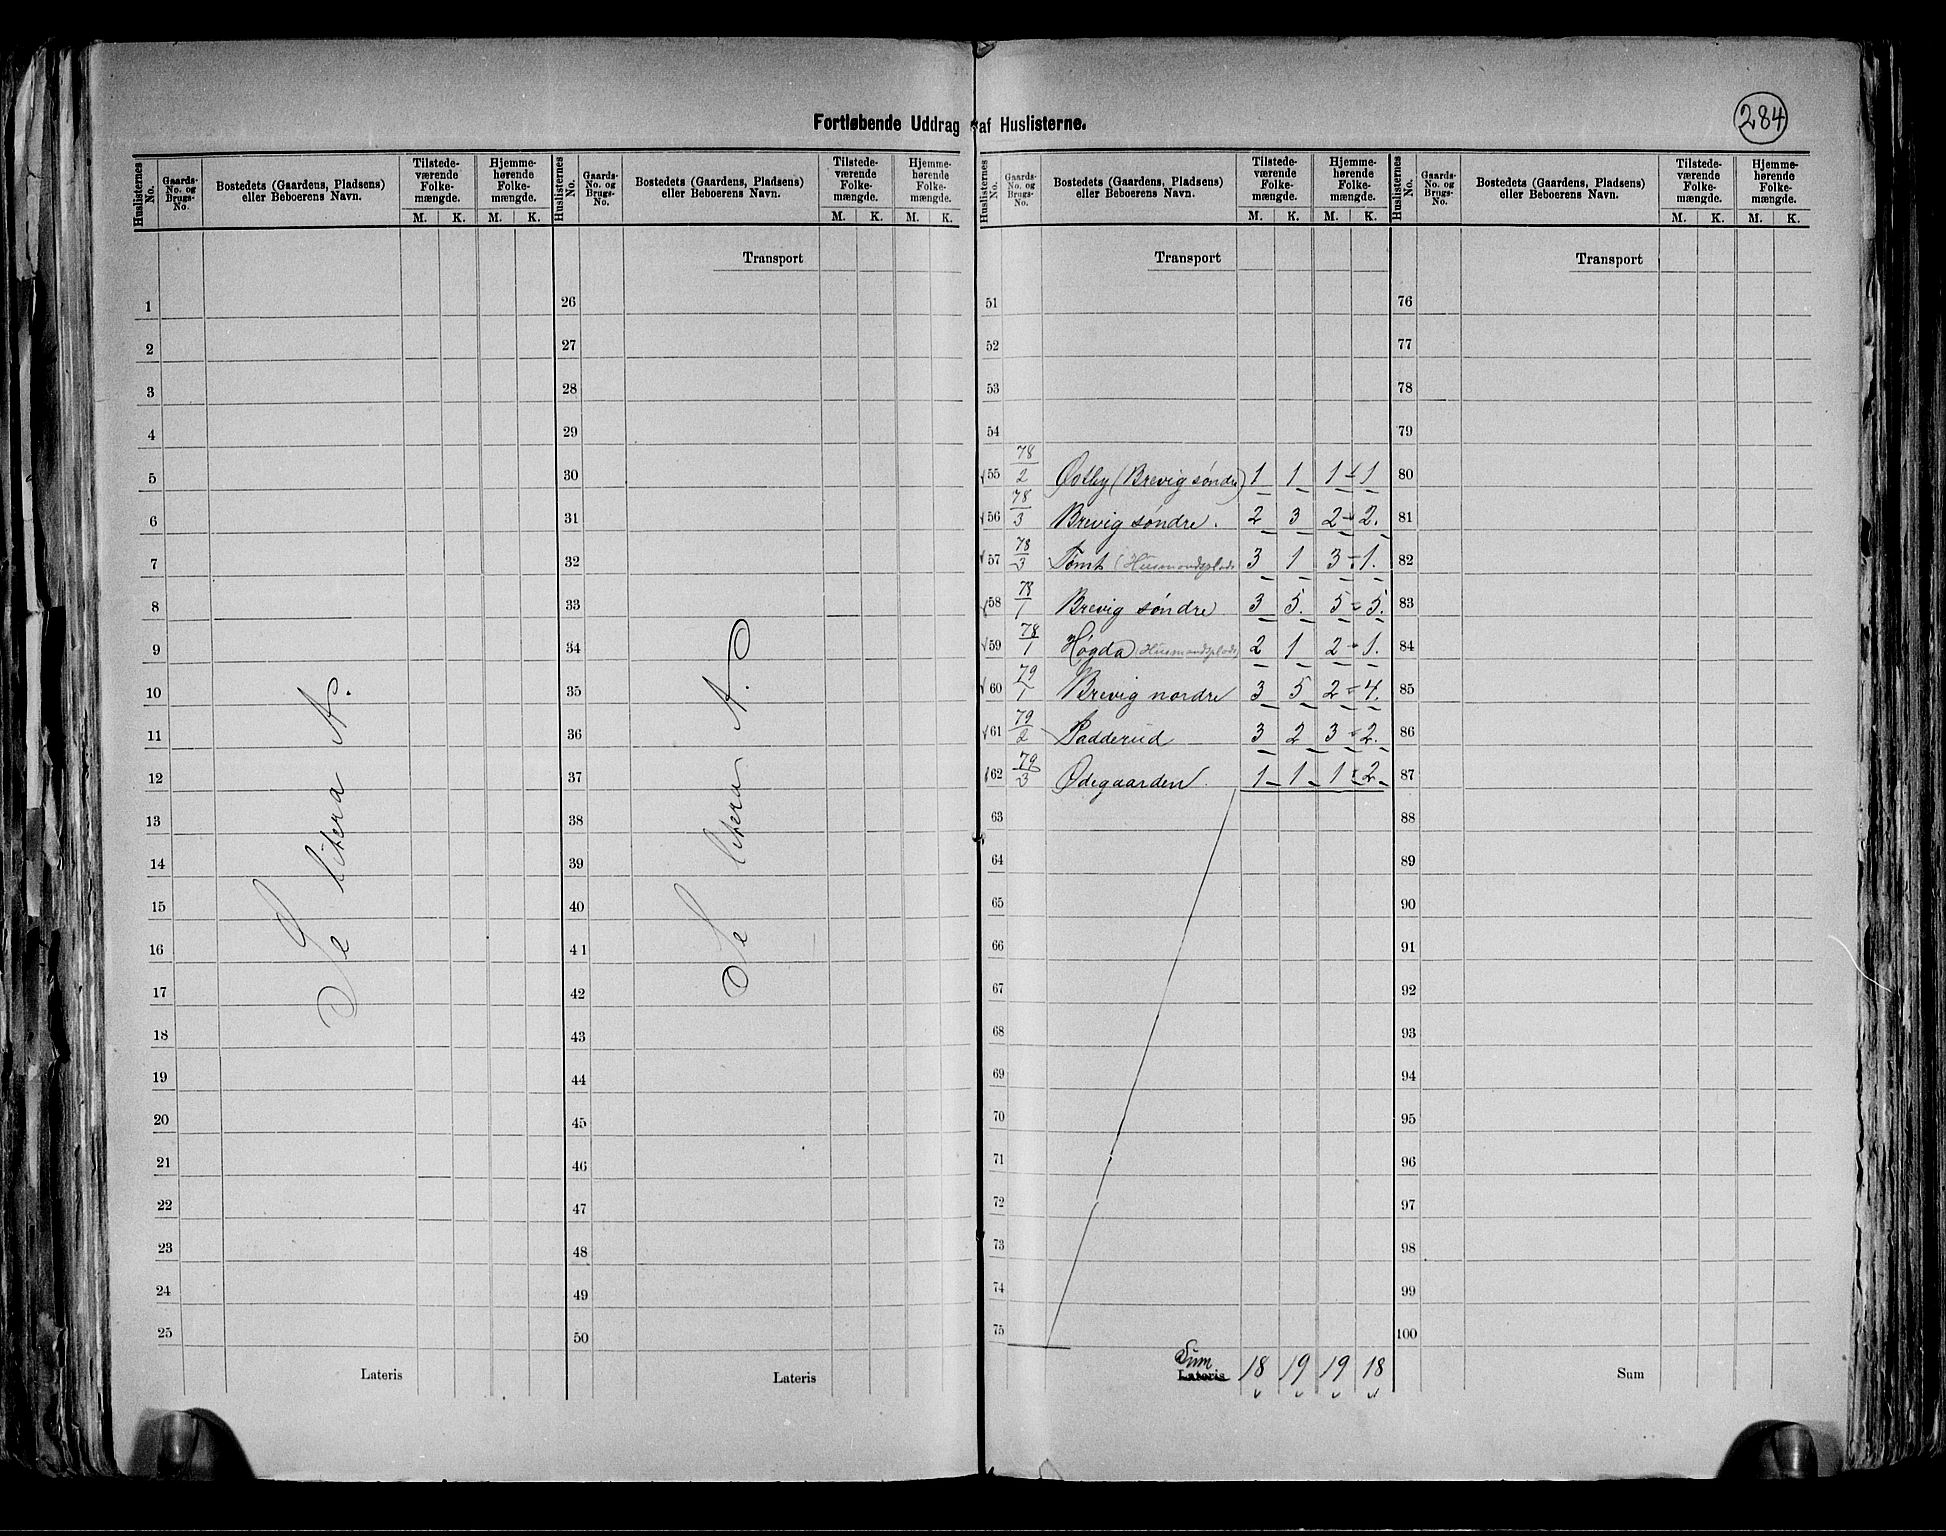 284
Fortløbende Uddrag af Huslisterne.
Huslisternes No. | Gaards-No. og Brugs-No. | Bostedets (Gaardens, Pladsens) eller Beboerens Navn. | Tilstede-værende Folke-mængde. M. K. | Hjemme-hørende Folke-mængde. M. K.
Huslisternes No. | Gaards-No. og Brugs-No. | Bostedets (Gaardens, Pladsens) eller Beboerens Navn. | Tilstede-værende Folke-mængde. M. K. | Hjemme-hørende Folke-mængde. M. K.
Huslisternes No. | Gaards-No. og Brugs-No. | Bostedets (Gaardens, Pladsens) eller Beboerens Navn. | Tilstede-værende Folke-mængde. M. K. | Hjemme-hørende Folke-mængde. M. K.
Huslisternes No. | Gaards-No. og Brugs-No. | Bostedets (Gaardens, Pladsens) eller Beboerens Navn. | Tilstede-værende Folke-mængde. M. K. | Hjemme-hørende Folke-mængde. M. K.
1
2
3
4
5
6
7
8
9
10
11
12
13
14
15
16
17
18
19
20
21
22
23
24
25
Se litera A.
Lateris
Transport
26
27
28
29
30
31
32
33
34
35
36
37
38
39
40
41
42
43
44
45
46
47
48
49
50
Se litera A.
Lateris
Transport
51
52
53
54
55 78/2 Østby (Brevig søndre) 1 1 1 1
56 78/3 Brevig søndre. 2 3 2 2.
57 78/3 Tomt (Husmandsplads 3 1 3 1.
58 78/1 Brevig søndre 3 5. 5 5.
59 78/1 Høgda (Husmandsplads) 2 1 2 1.
60 79/1 Brevig nordre 3 5 2 4.
61 79/2 Padderud 3 2 3 2.
62 79/3 Ødegaarden. 1 1 1 2
63
64
65
66
67
68
69
70
71
72
73
74
75
Sum
Lateris 18 19 19 18
Transport
76
77
78
79
80
81
82
83
84
85
86
87
88
89
90
91
92
93
94
95
96
97
98
99
100
Sum